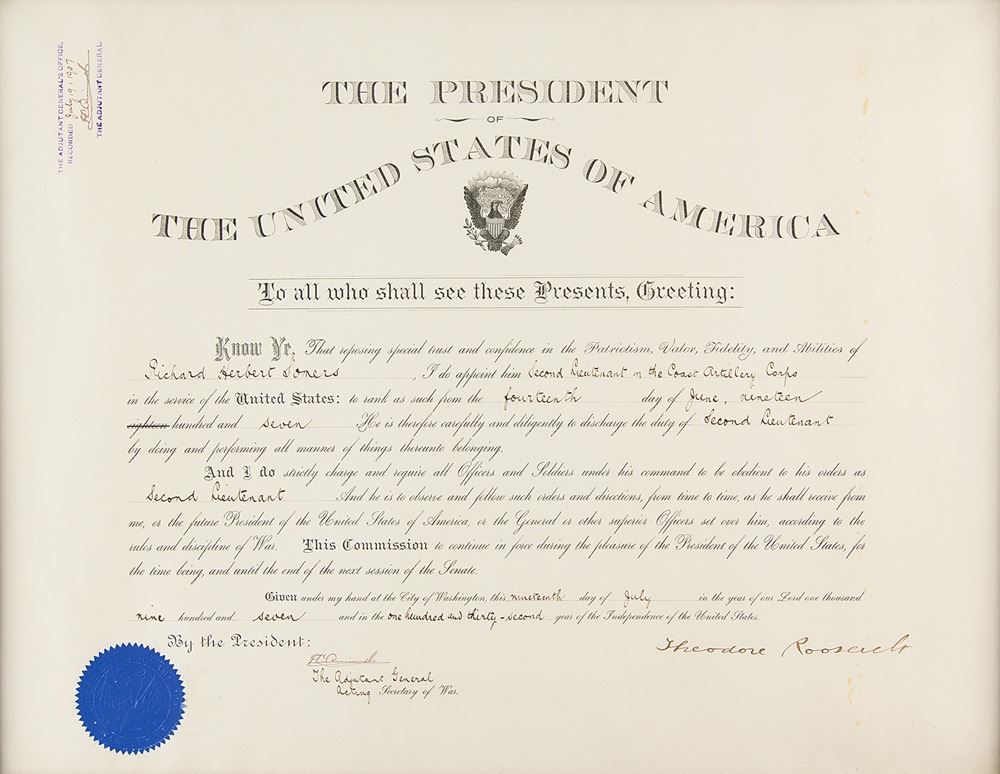 THE ADJUTANT GENERAL'S OFFICE,
RECORDED July 19, 1907
THE ADJUTANT GENERAL.
THE PRESIDENT
OF
THE UNITED STATES OF AMERICA
To all who shall see these Presents, Greeting:
Know Ye, That reposing special trust and confidence in the Patriotism, Valor, Fidelity, and Abilities of
Richard Herbert Somers, I do appoint him Second Lieutenant in the Coast Artillery Corps
in the service of the United States: to rank as such from the fourteenth day of June, nineteen
eighteen hundred and seven He is therefore carefully and diligently to discharge the duty of Second Lieutenant
by doing and performing all manner of things thereunto belonging.
And I do strictly charge and require all Officers and Soldiers under his command to be obedient to his orders as
Second Lieutenant And he is to observe and follow such orders and directions, from time to time, as he shall receive from
me, or the future President of the United States of America, or the General or other superior Officers set over him, according to the
rules and discipline of War. This Commission to continue in force during the pleasure of the President of the United States, for
the time being, and until the end of the next session of the Senate.
Given under my hand at the City of Washington, this nineteenth day of July in the year of our Lord one thousand
nine hundred and seven and in the one hundred and thirty-second year of the Independence of the United States.
By the President:
Theodore Roosevelt
The Adjutant General
Acting Secretary of War.